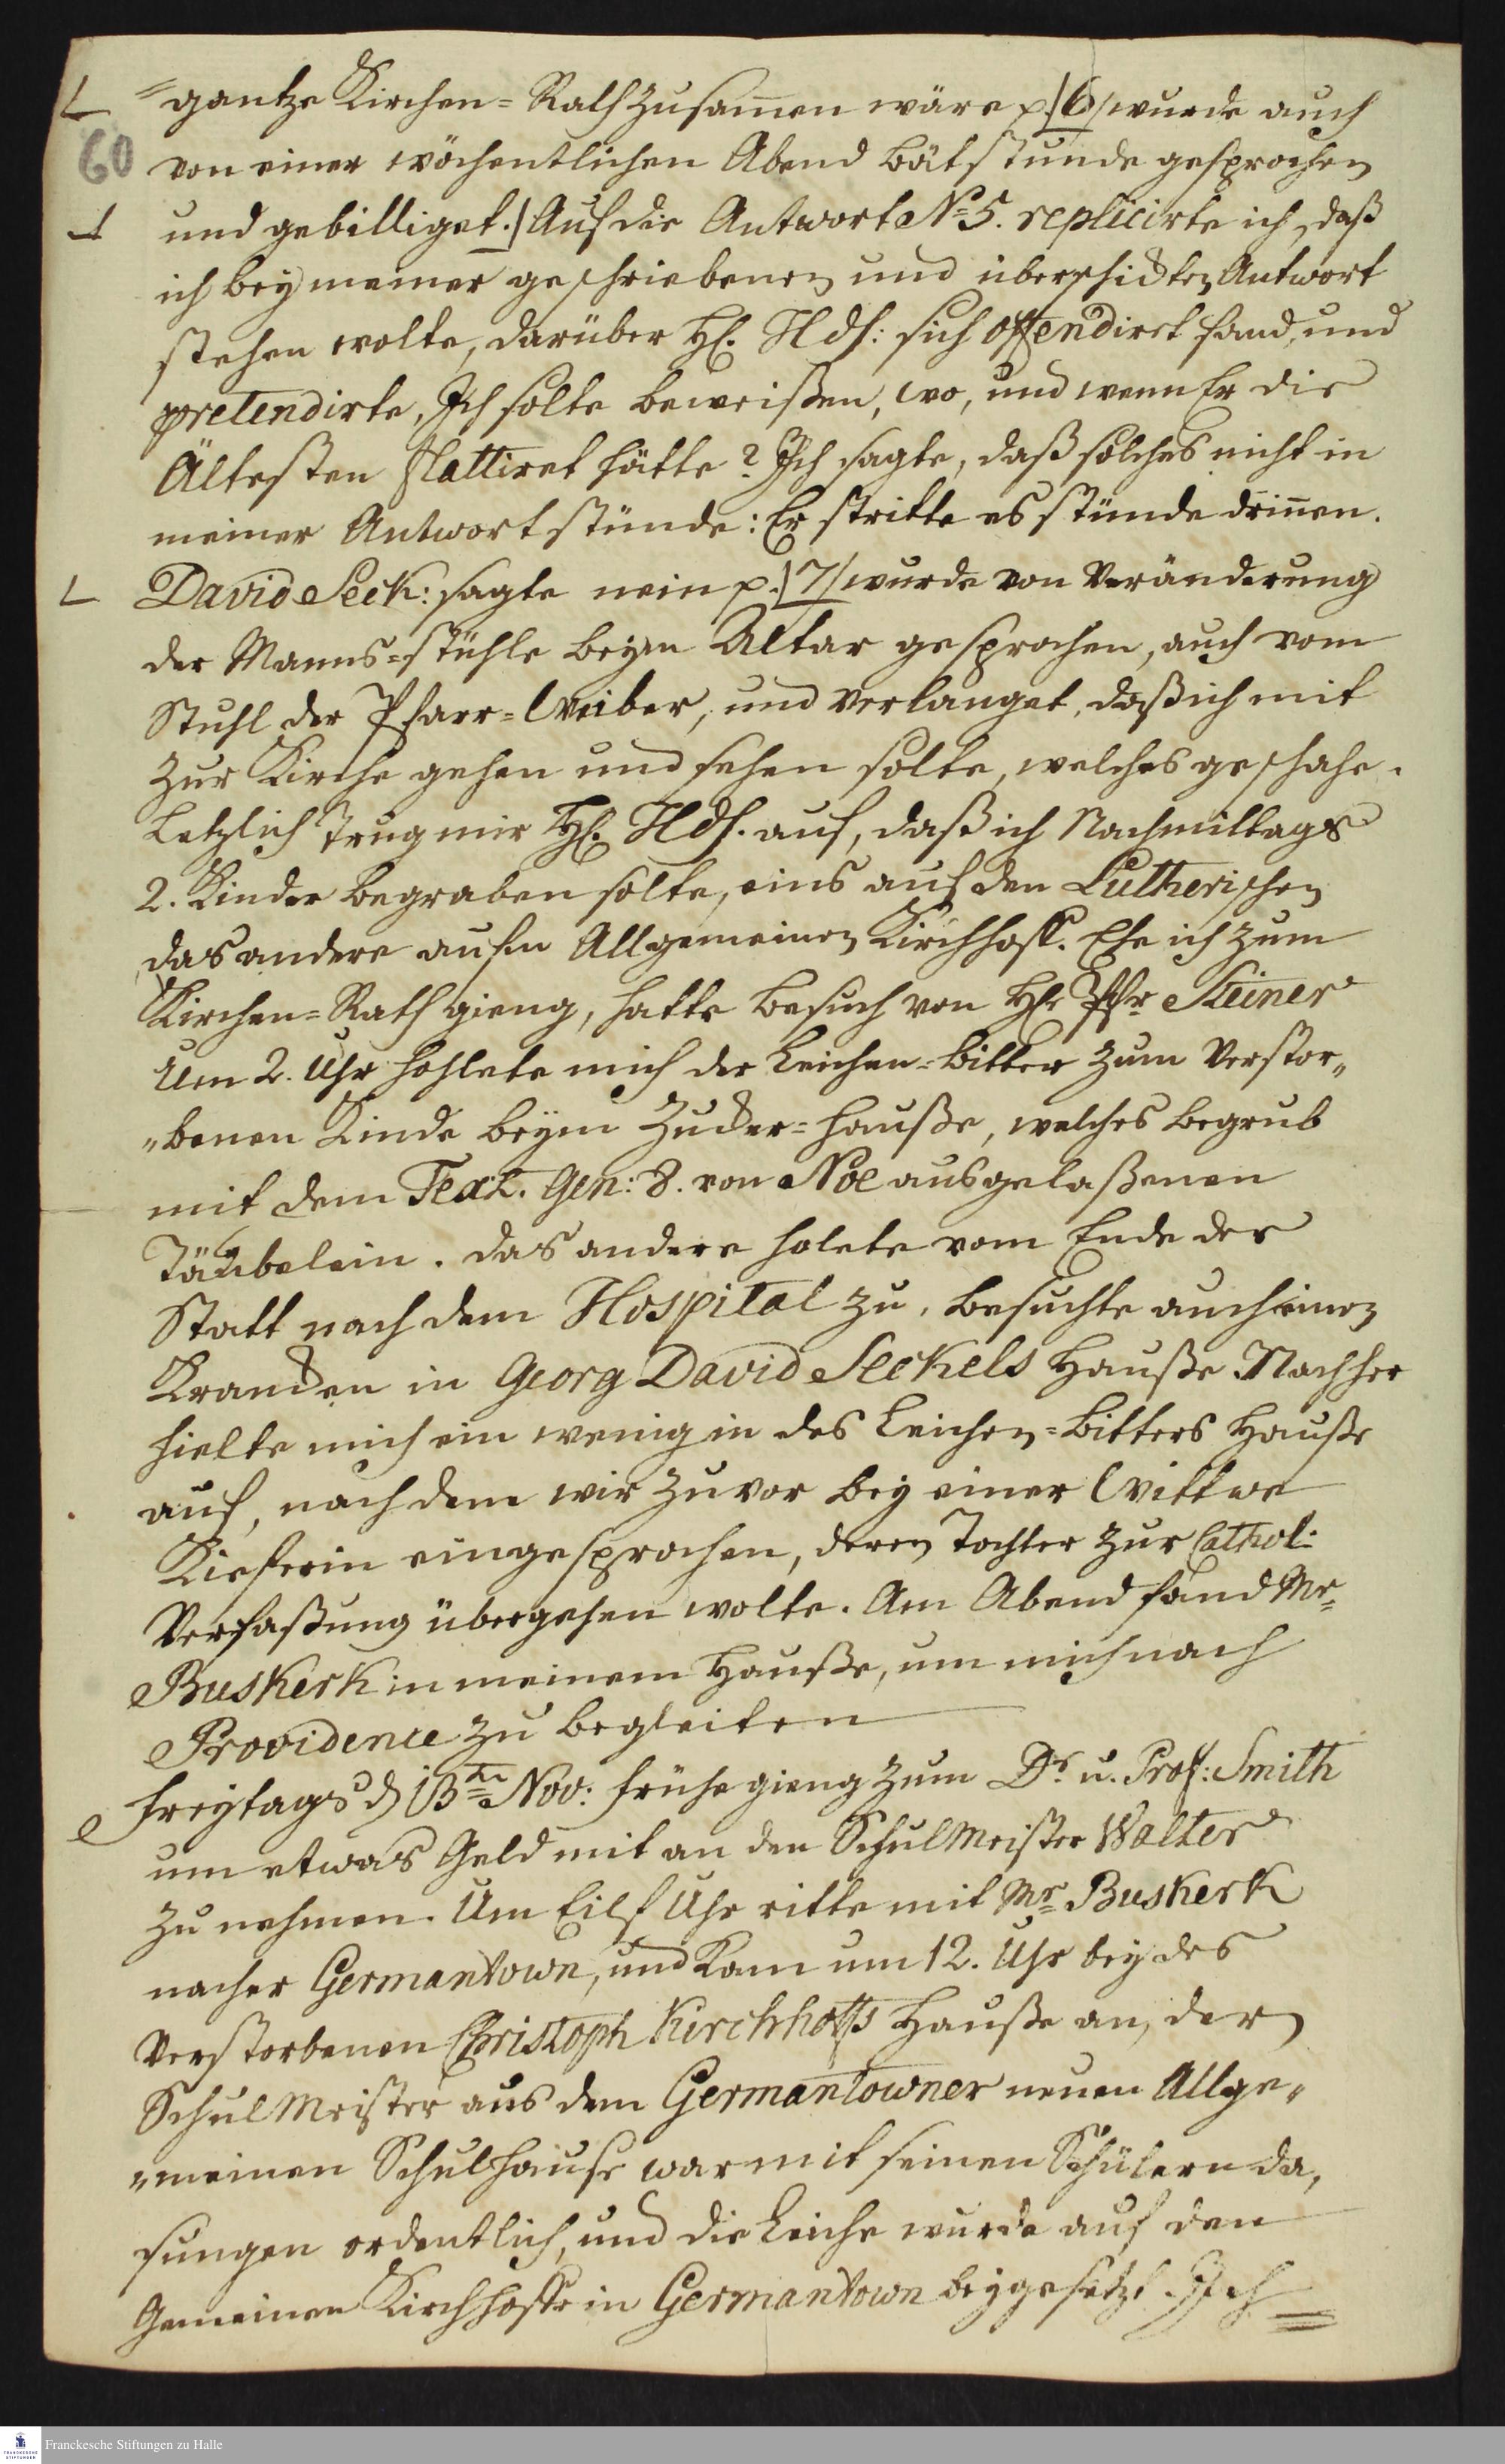 gantze Kirchen=Rath zusam̄en wäre p.|6| wurde auch
60
von einer wöchentlichen Abend bätstunde gesprochen
und gebilliget.| Auf die Antwort No 5. replicirte ich, daß
ich bey meiner geschriebenen und überschickten Antwort
stehen wolte, darüber H. Hds: sich offendirt fand, und
pretendirte, Ich solte beweißen, wo, und wenn Er die
Ältesten flattiret hätte? Ich sagte, daß solches nicht in
meiner Antwort stünde: Er stritte es stünde drin̄en.
David Seck: sagte nein p.|7| wurde von Veränderung
der Manns=stühle beym Altar gesprochen, auch vom
Stuhl der Pfarr=Weiber, und verlanget, daß ich mit
zur Kirche gehen und sehen solte, welches geschahe.
Letzlich trug mir H. Hds. auf, daß ich Nachmittags
2. Kinder begraben solte, eins auf den Lutherischen
das andere aufm Allgemeinen Kirchhoff. Ehe ich zum
Kirchen=Rath gieng, hatte besuch von H. Pfr Steiner
Um 2. Uhr hohlete mich der Leichen=bitter zum Verstor„
„benen Kinde beym Zucker=Hauße, welches begrub
mit dem Text. Gen: 8. von Noe ausgelaßenen
Täubelein. das andere holete vom Ende der
Statt nach dem Hospital zu, besuchte auch einen
Krancken in Georg David Seckels Hauße. Nachher
hielte mich ein wenig in des Leichen=bitters Hauße
auf, nach dem wir zuvor bey einer Wittwe
Kieferin eingesprochen, deren Tochter zur Cathol:
Verfaßung übergehen wolte. Am Abend fand Mr
Buskerk in meinem Hauße, um mich nach
Providence zu begleiten
Freytags d 13ten Nov: frühe gieng zum Dr. u. Prof: Smith
um etwas Geld mit an den SchulMeister Walter
zu nehmen. Um Eilf Uhr ritte mit Mr Buskerk
nacher Germantown, und kam um 12. Uhr bey des
Verstorbenen Christoph Kirchhoffs Hauße an, der
SchulMeister aus dem Germantowner neuen Allge„
„meinen Schulhause war mit seinen Schülern da,
sungen ordentlich, und die Leiche wurde auf den
Gemeinen Kirchhoffe in Germantown beygesetzt. Ich
Franckesche Stiftungen zu Halle